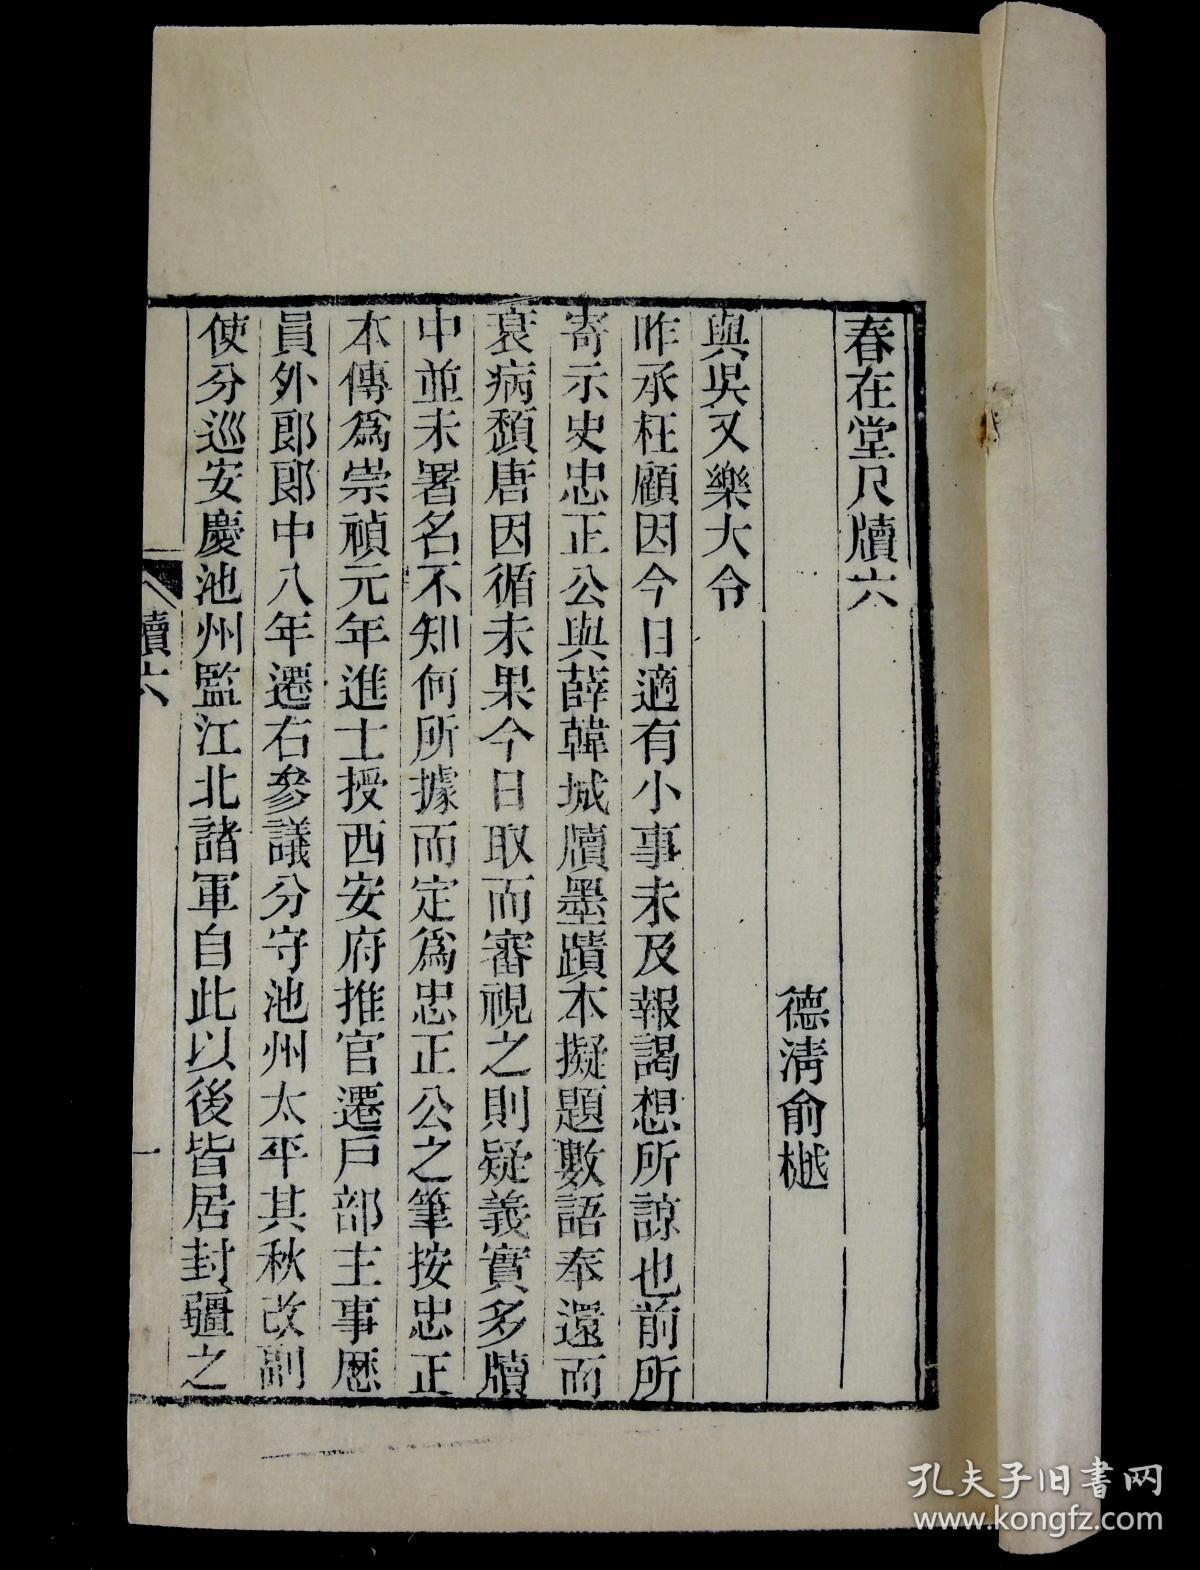 春在堂尺牘六
德淸俞樾
與吳又樂大令
昨承枉顧因今日適有小事未及報謁想所諒也前所
寄示史忠正公與薛韓城牘墨蹟本擬題數語奉還而
衰病頹唐因循未果今日取而審視之則疑義實多牘
中並未署名不知何所據而定爲忠正公之筆按忠正
本傳爲崇禎元年進士授西安府推官遷戶部主事歷
員外郞郞中八年遷右參議分守池州太平其秋改副
使分巡安慶池州監江北諸軍自此以後皆居封疆之
牘六
一
孔夫子旧書网
www.kongfz.com